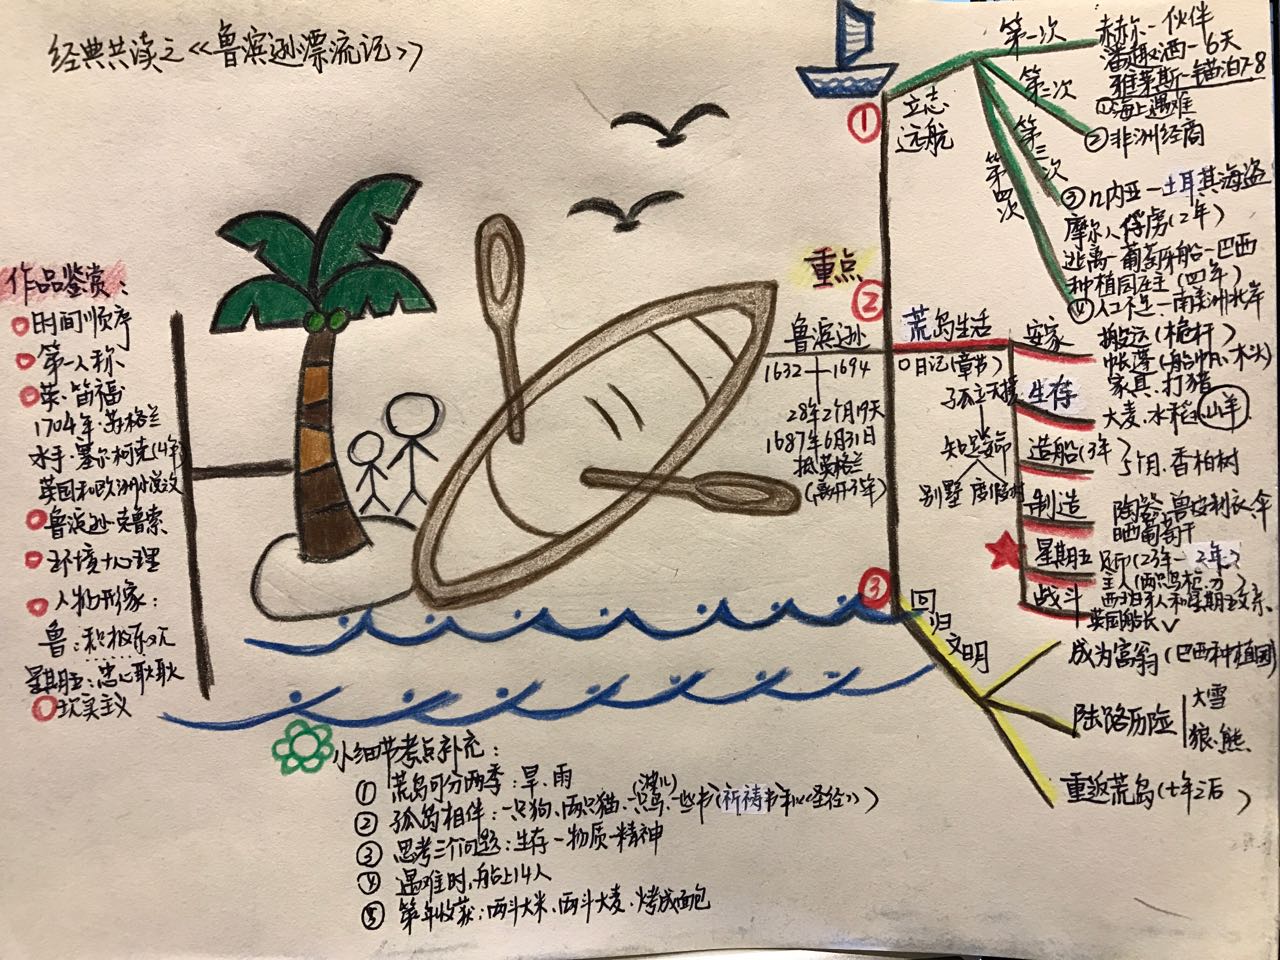 经典共读之《鲁滨逊漂流记》
作品鉴赏：
时间顺序
第一人称
英·笛福
1704年·苏格兰
水手·塞尔柯克(4年)
英国和欧洲小说
鲁滨逊·克鲁索
环境+心理
人物形象：
鲁：积极乐观
星期五：忠心耿耿
现实主义
重点
鲁滨逊
1632 1694
28年2月19天
1687年6月31日
抵英格兰
(离开35年)
①
立志
远航
第一次
赫尔-伙伴
-6天
雅茅斯-锚泊7-8
①海上遇难
第二次
②非洲经商
第三次
③几内亚-土耳其海盗
摩尔人俘虏(2年)
逃离-葡萄牙船-巴西
种植园庄主(四年)
第四次
④人口不足-南美洲北岸
②
荒岛生活
日记(章节)
孤立无援
别墅 度假村
安家
搬运(桅杆)
帐篷(船帆、木头)
家具·打猪
生存
大麦·水稻 山羊
造船(3年)
5个月·香柏树
制造
陶器·兽皮制衣、伞
晒葡萄干
星期五
战斗
英国船长✓
③
回归文明
成为富翁(巴西种植园)
陆路历险
大雪
狼·熊
重返荒岛(七年之后)
小细节考点补充：
①荒岛可分两季：旱、雨
②孤岛相伴：一只狗、两只猫、一只鸟(波儿)、一些书(祈祷书和《圣经》)
③思考三个问题：生存-物质-精神
④遇难时，船上14人
⑤第年收获：两斗大米、两斗大麦、烤成面包